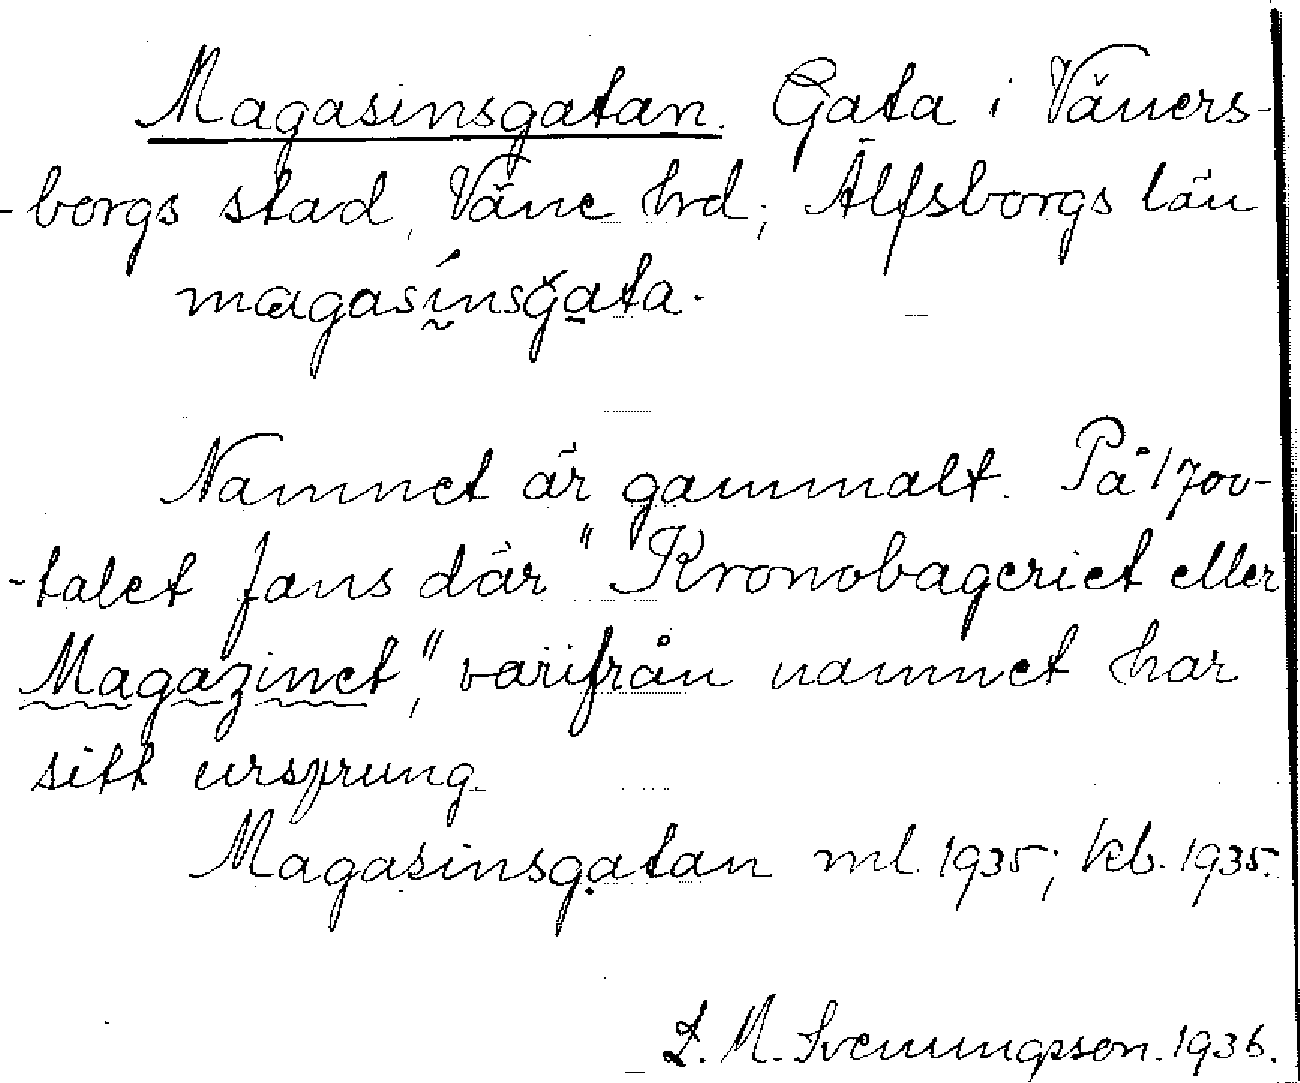 Magasinsgatan. Gata i Väners-
-borgs stad, Väne hrd; Älfsborgs län
magasínsgata.
Namnet är gammalt. På 1700-
-talet fans där "Kronobageriet eller
Magazinet", varifrån namnet har
sitt ursprung.
Magasinsgatan ml. 1935; kb. 1935.
L. M. Svenungsson. 1936.